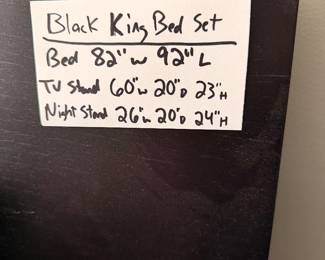 Black King Bed Set
Bed 82"w 92"L
TV Stand 60"w 20"D 23"H
Night Stand 26"w 20"D 24"H